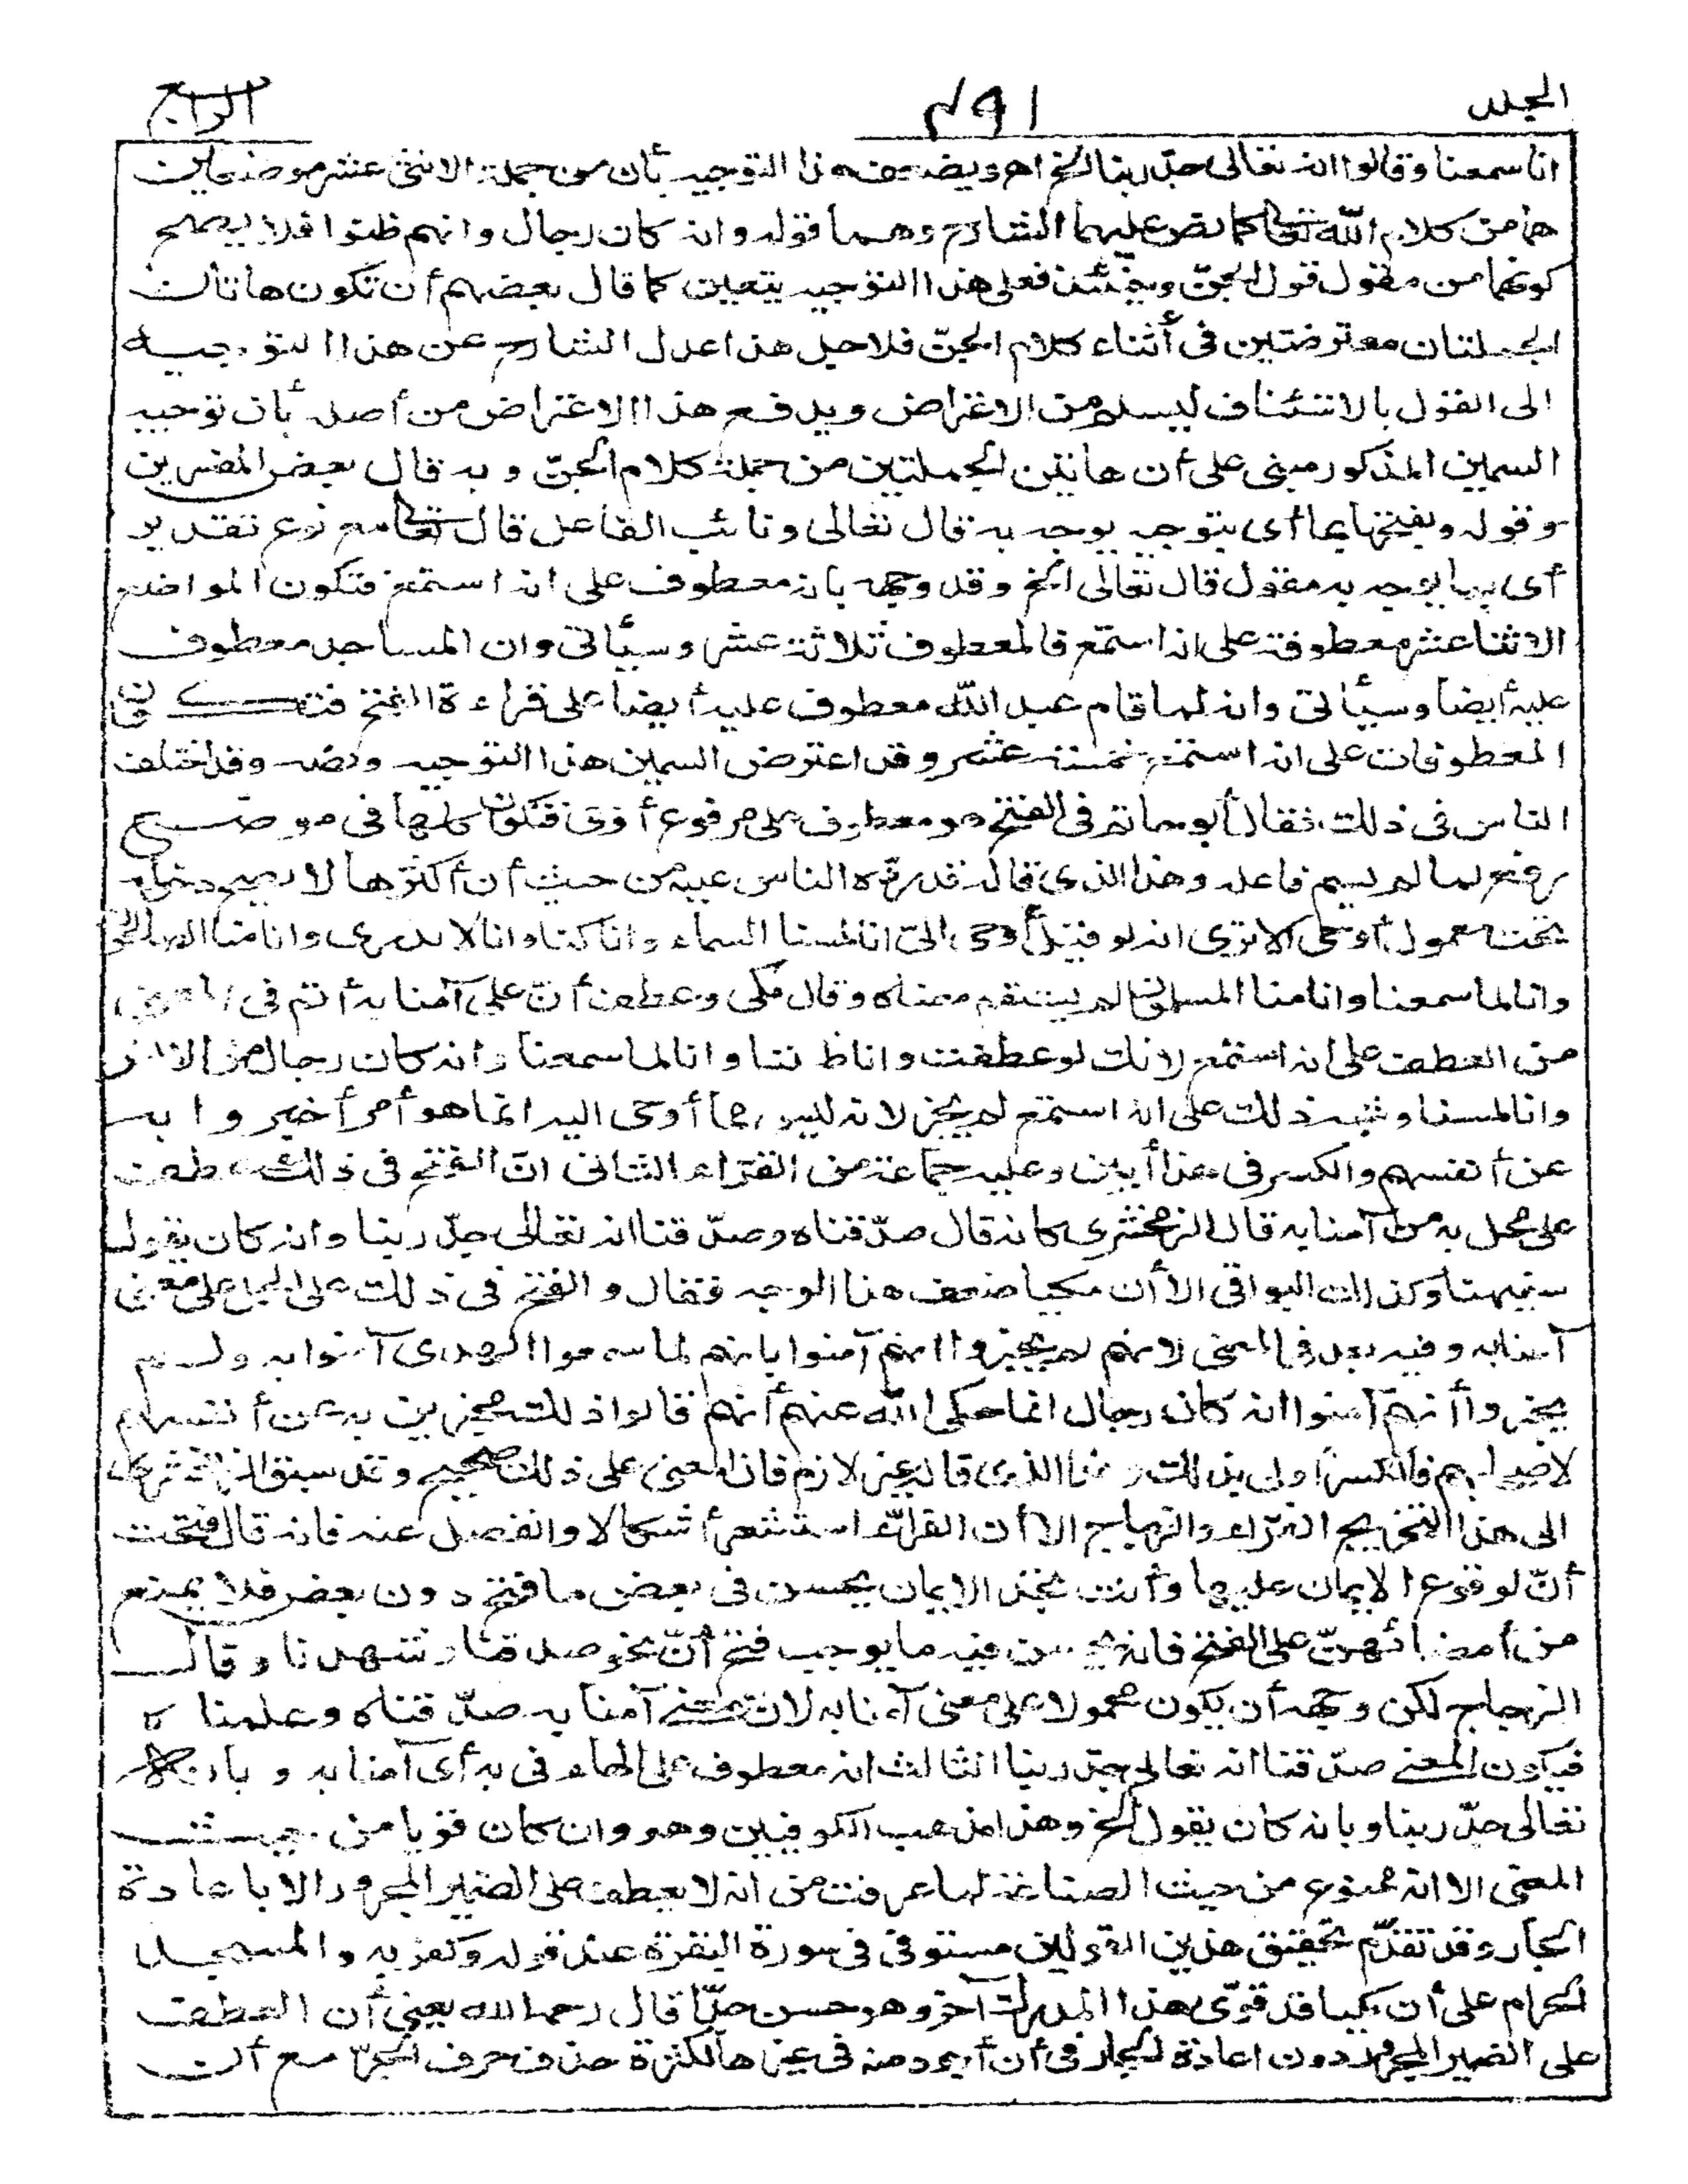 المجلد ١٩٤ الرابع
انا سمعنا وقالوا انه تعالى جدّ ربنا الخ اهـ ويضعف هذا التوجيه بأن من جملة الاثنى عشر موضعين
هما من كلام الله تعالى كما نص عليهما الشارح وهما قوله وانه كان رجال وانهم ظنوا فلا يصح
كونهما من مقول قول الجنّ وحينئذ فعلى هذا التوجيه يتعين كما قال بعضهم أن تكون هاتان
الجملتان معترضتين فى أثناء كلام الجنّ فلاجل هذا عدل الشارح عن هذا التوجيه
الى القول بالاستئناف ليسلم من الاعتراض ويدفع هذا الاعتراض من أصله بأن توجيه
السمين المذكور مبنى على أن هاتين الجملتين من جملة كلام الجنّ وبه قال بعض المفسرين
وقوله وبفتحها بما أى بتوجيه يوجه به قال تعالى ونائب الفاعل قال تعالى مع نوع تقدير
أى بما يوجه به مقول قال تعالى الخ وقد وجهه بانه معطوف على انه استمع فتكون المواضع
الاثنا عشر معطوفة على انه استمع فالمعطوف ثلاثة عشر وسيأتى وان المساجد معطوف
عليه أيضا وسيأتى وانه لما قام عبد الله معطوف عليه أيضا على قراءة الفتح فتكون
المعطوفات على انه استمع خمسة عشر وقد اعترض السمين هذا التوجيه ونصه وقد اختلف
الناس فى ذلك فقال أبو حاتم فى الفتح هو معطوف على مرفوع أوحى فتكون كلها فى موضع
رفع لما لم يسم فاعله وهذا الذى قاله قد ردّه الناس عليه من حيث أن أكثرها لا يصح دخوله
تحت معمول أوحى الا ترى انه لو قيل أوحى الىّ انا لمسنا السماء وانا كنا وانا لا ندرى وانا منا الصالحون
وانا لما سمعنا وانا منا المسلمون لم يستقم معناه وقال مكى وعطف أنّ على آمنا به أتم فى المعنى
من العطف على انه استمع لانك لو عطفت وانا ظننا وانا لما سمعنا وانه كان رجال من الانس
وانا لمسنا وشبه ذلك على انه استمع لم يجز لانه ليس مما أوحى اليه انما هو أمر أخبروا به
عن أنفسهم والكسر فى هذا أبين وعليه جماعة من القرّاء الثانى انّ الفتح فى ذلك عطف
على محل به من آمنا به قال الزمخشرى كانه قال صدّقناه وصدّقنا انه تعالى جدّ ربنا وانه كان يقول
سفيهنا وكذلك البواقى الا أن مكيا ضعف هذا الوجه فقال والفتح فى ذلك على الحمل على معنى
آمنا به وفيه بعد فى المعنى لانهم لم يخبروا انهم آمنوا بانهم لما سمعوا الهدى آمنوا به ولم
يخبروا أنهم آمنوا انه كان رجال انما حكى الله عنهم أنهم قالوا ذلك مخبرين به عن أنفسهم
لاصحابهم فالكسر أولى بذلك وهذا الذى قاله غير لازم فان المعنى على ذلك صحيح وقد سبق الزمخشرى
الى هذا التخريج الفرّاء والزجاج الا أن الفرّاء استشعر أشكالا وانفصل عنه فانه قال فتحت
أنّ لوقوع الايمان عليها وأنت تجد الايمان يحسن فى بعض ما فتح دون بعض فلا يمنع
من أمضائهنّ على الفتح فانه يحسن فيه ما يوجب فتح أنّ نحو صدقنا وشهدنا وقال
الزجاج لكن وجهه أن يكون محمولا على معنى آمنا به لان معنى آمنا به صدّقناه وعلمناه
فيكون المعنى صدّقنا انه تعالى جدّ ربنا الثالث انه معطوف على الهاء فى به أى آمنا به وبانه
تعالى جدّ ربنا وبانه كان يقول الخ وهذا مذهب الكوفيين وهو وان كان قويا من حيث
المعنى الا انه ممنوع من حيث الصناعة لما عرفت من انه لا يعطف على الضمير المجرور الا باعادة
الجار وقد تقدّم تحقيق هذين القولين مستوفى فى سورة البقرة عند قوله وكفر به والمسجد
الحرام على أن مكيا قد قوّى هذا المدرك آخر وهو حسن جدّا قال رحمه الله يعنى أن العطف
على الضمير المجرور دون اعادة الجار فى أن أجود منه فى غيرها لكثرة حذف حرف الجرّ مع أن